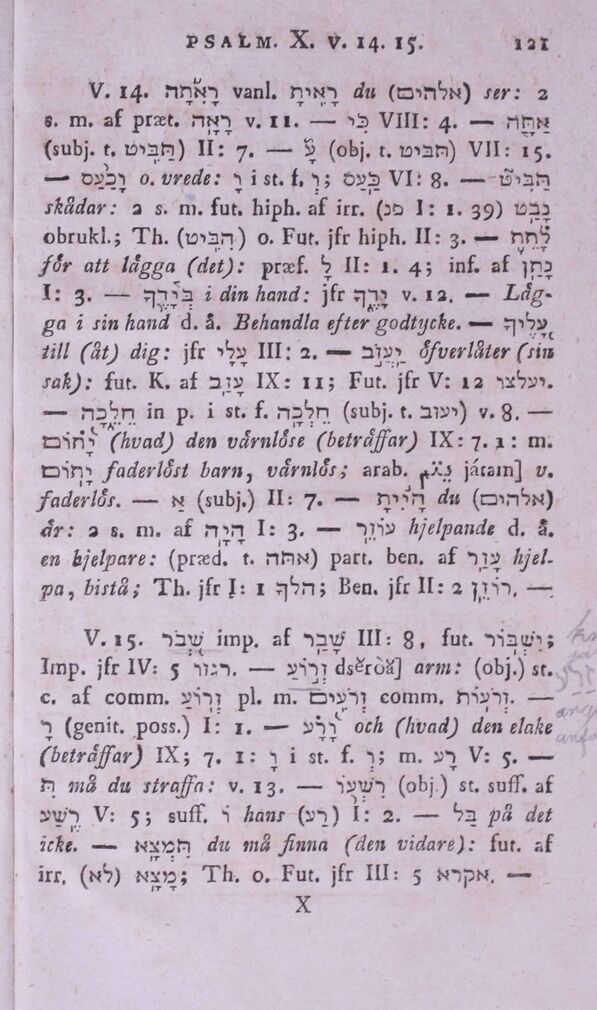 PSALM. X. V. 14. 15. 121
V. 14. רָאִתָה vanl. רָאִיתָ du (אלהים) ser: 2
s. m. af præt. רָאָה v. 11. — כִּי VIII: 4. — אַתָּה
(subj. t. תַּבִּיט) II: 7. — עָ (obj. t. תביט) VII: 15.
— וָכַעַס o. vrede: וָ i st. f. וְ; כַּעַס VI: 8. — תַּבִּיט
skådar: 2 s. m. fut. hiph. af irr. (פנ I: 1. 39) נָבַט
obrukl.; Th. (הִבִּיט) o. Fut. jfr hiph. II: 3. — לָתֵת
för att lägga (det): præf. לָ II: 1. 4; inf. af נָתַן
I: 3. — בְּיָדֶךָ i din hand: jfr יָדֶךָ v. 12. — Läg-
ga i sin hand d. ä. Behandla efter godtycke. — עָלֶיךָ
till (åt) dig: jfr עָלַי III: 2. — יַעֲזֹב öfverlåter (sin
sak): fut. K. af עָזַב IX: 11; Fut. jfr V: 12 יעלצו.
— חֵלֵכָה in p. i st. f. חֵלְכָה (subj. t. יעזב) v. 8. —
יָתוֹם (hvad) den vårnlöse (beträffar) IX: 7. 1: m.
יָתוֹם faderlöst barn, vårnlös; arab. játam] v.
faderlös. — אַ (subj.) II: 7. — הָיִיתָ du (אלהים)
är: 2 s. m. af הָיָה I: 3. — עוֹזֵר hjelpande d. ä.
en hjelpare: (præd. t. אתה) part. ben. af עָזַר hjel-
pa, bistå; Th. jfr I: 1 הלך; Ben. jfr II: 2 רוֹזֵן. —
V. 15. שְׁבֹר imp. af שָׁבַר III: 8, fut. יִשְׁבּוֹר;
Imp. jfr IV: 5 רגזו. — זְרוֹעַ dsĕròă] arm: (obj.) st.
c. af comm. זְרוֹעַ pl. m. זְרֹעִים comm. זְרֹעוֹת. —
רָ (genit. poss.) I: 1. — וָרָע och (hvad) den elake
(beträffar) IX; 7. 1: וָ i st. f. וְ; m. רָע V: 5. —
תִּ må du straffa: v. 13. — רִשְׁעוֹ (obj.) st. suff. af
רֶשַׁע V: 5; suff. וֹ hans (רָע) I: 2. — בַּל på det
icke. — תִּמְצָא du må finna (den vidare): fut. af
irr. (לא) מָצָא; Th. o. Fut. jfr III: 5 אקרא. —
X